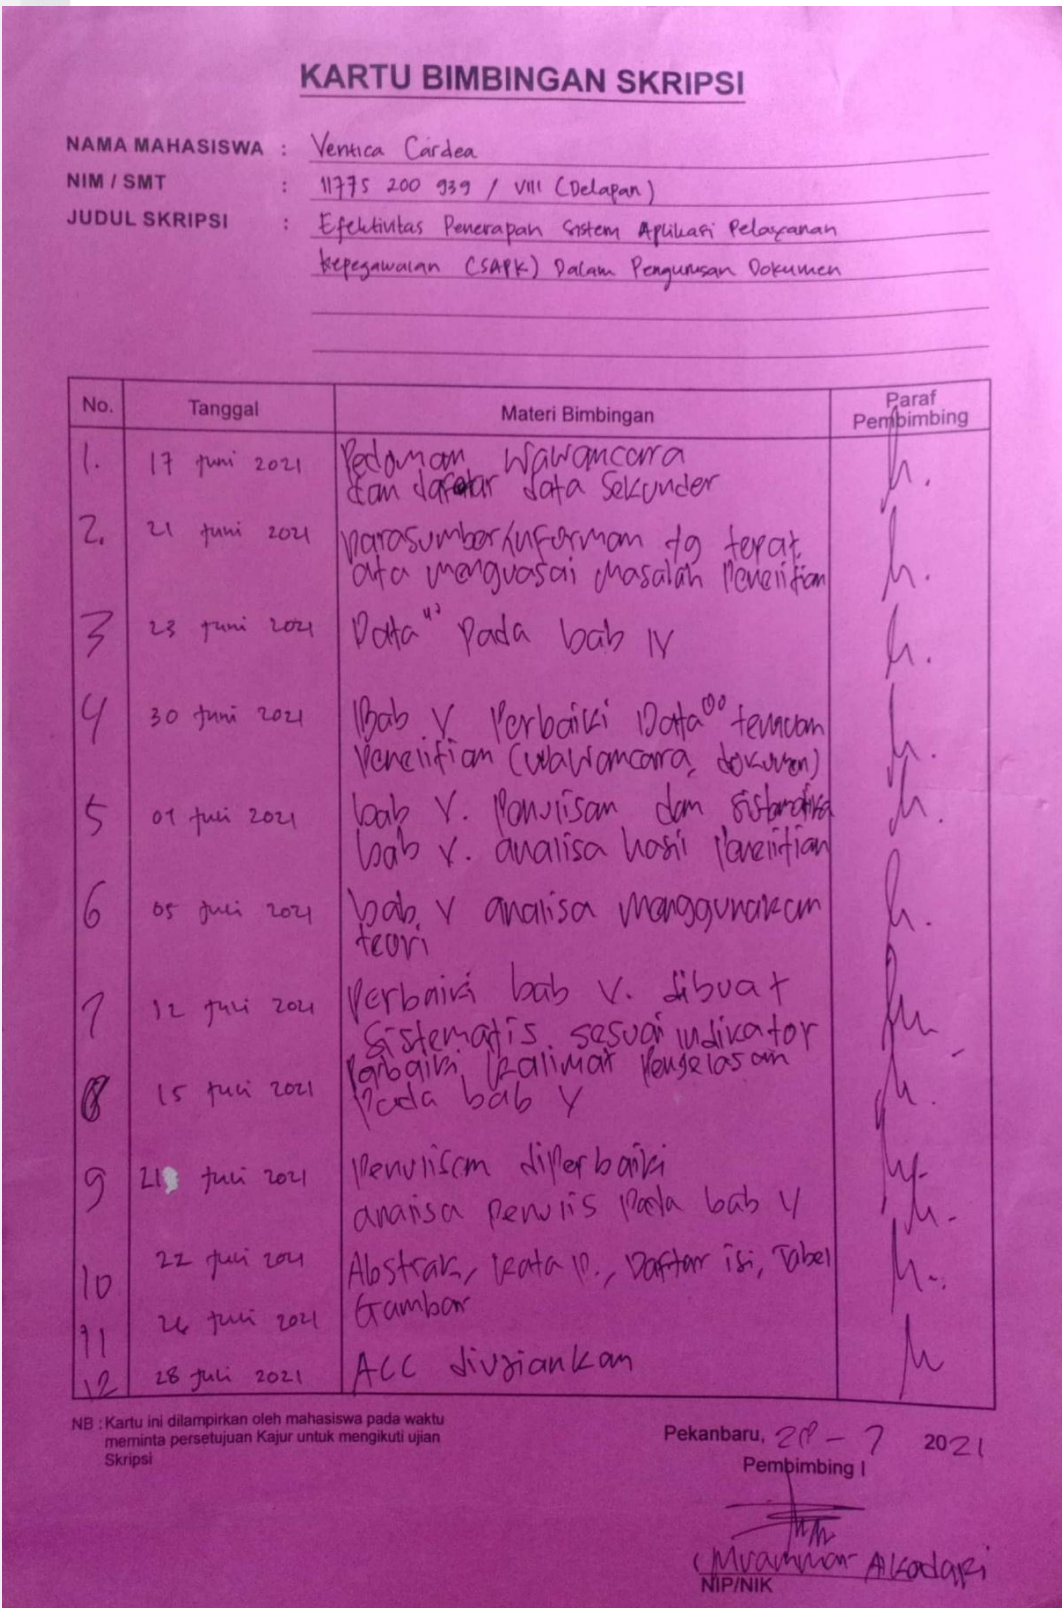 KARTU BIMBINGAN SKRIPSI
NAMA MAHASISWA : Ventica Cardea
NIM / SMT : 11775 200 939 / VIII (Delapan)
JUDUL SKRIPSI : Efektivitas Penerapan Sistem Aplikasi Pelayanan
Kepegawaian (SAPK) Dalam Pengurusan Dokumen
No. Tanggal Materi Bimbingan Paraf Pembimbing
1. 17 Juni 2021 Pedoman Wawancara
dan daftar data Sekunder
2. 21 Juni 2021 narasumber/informan yg tepat
menguasai masalah Penelitian
3 23 Juni 2021 Data" Pada bab IV
4 30 Juni 2021 Bab V Perbaiki Data" temuan
Penelitian (wawancara, dokumen)
5 01 Juli 2021 bab V. Penulisan dan sistematika
bab V. analisa hasil Penelitian
6 05 Juli 2021 bab V analisa menggunakan
teori
7 12 Juli 2021 Perbaiki bab V. dibuat
Sistematis. sesuai indikator
8 15 Juli 2021 Perbaiki Kalimat Penjelasan
Pada bab V
9 21 Juli 2021 Penulisan diperbaiki
analisa penulis Pada bab V
10 22 Juli 2021 Abstrak, Kata P., Daftar isi, Tabel
Gambar
11 26 Juli 2021
12 28 Juli 2021 ACC diujiankan
NB : Kartu ini dilampirkan oleh mahasiswa pada waktu
meminta persetujuan Kajur untuk mengikuti ujian
Skripsi
Pekanbaru, 28 - 7 2021
Pembimbing I
(Muammar Alkadafi
NIP/NIK